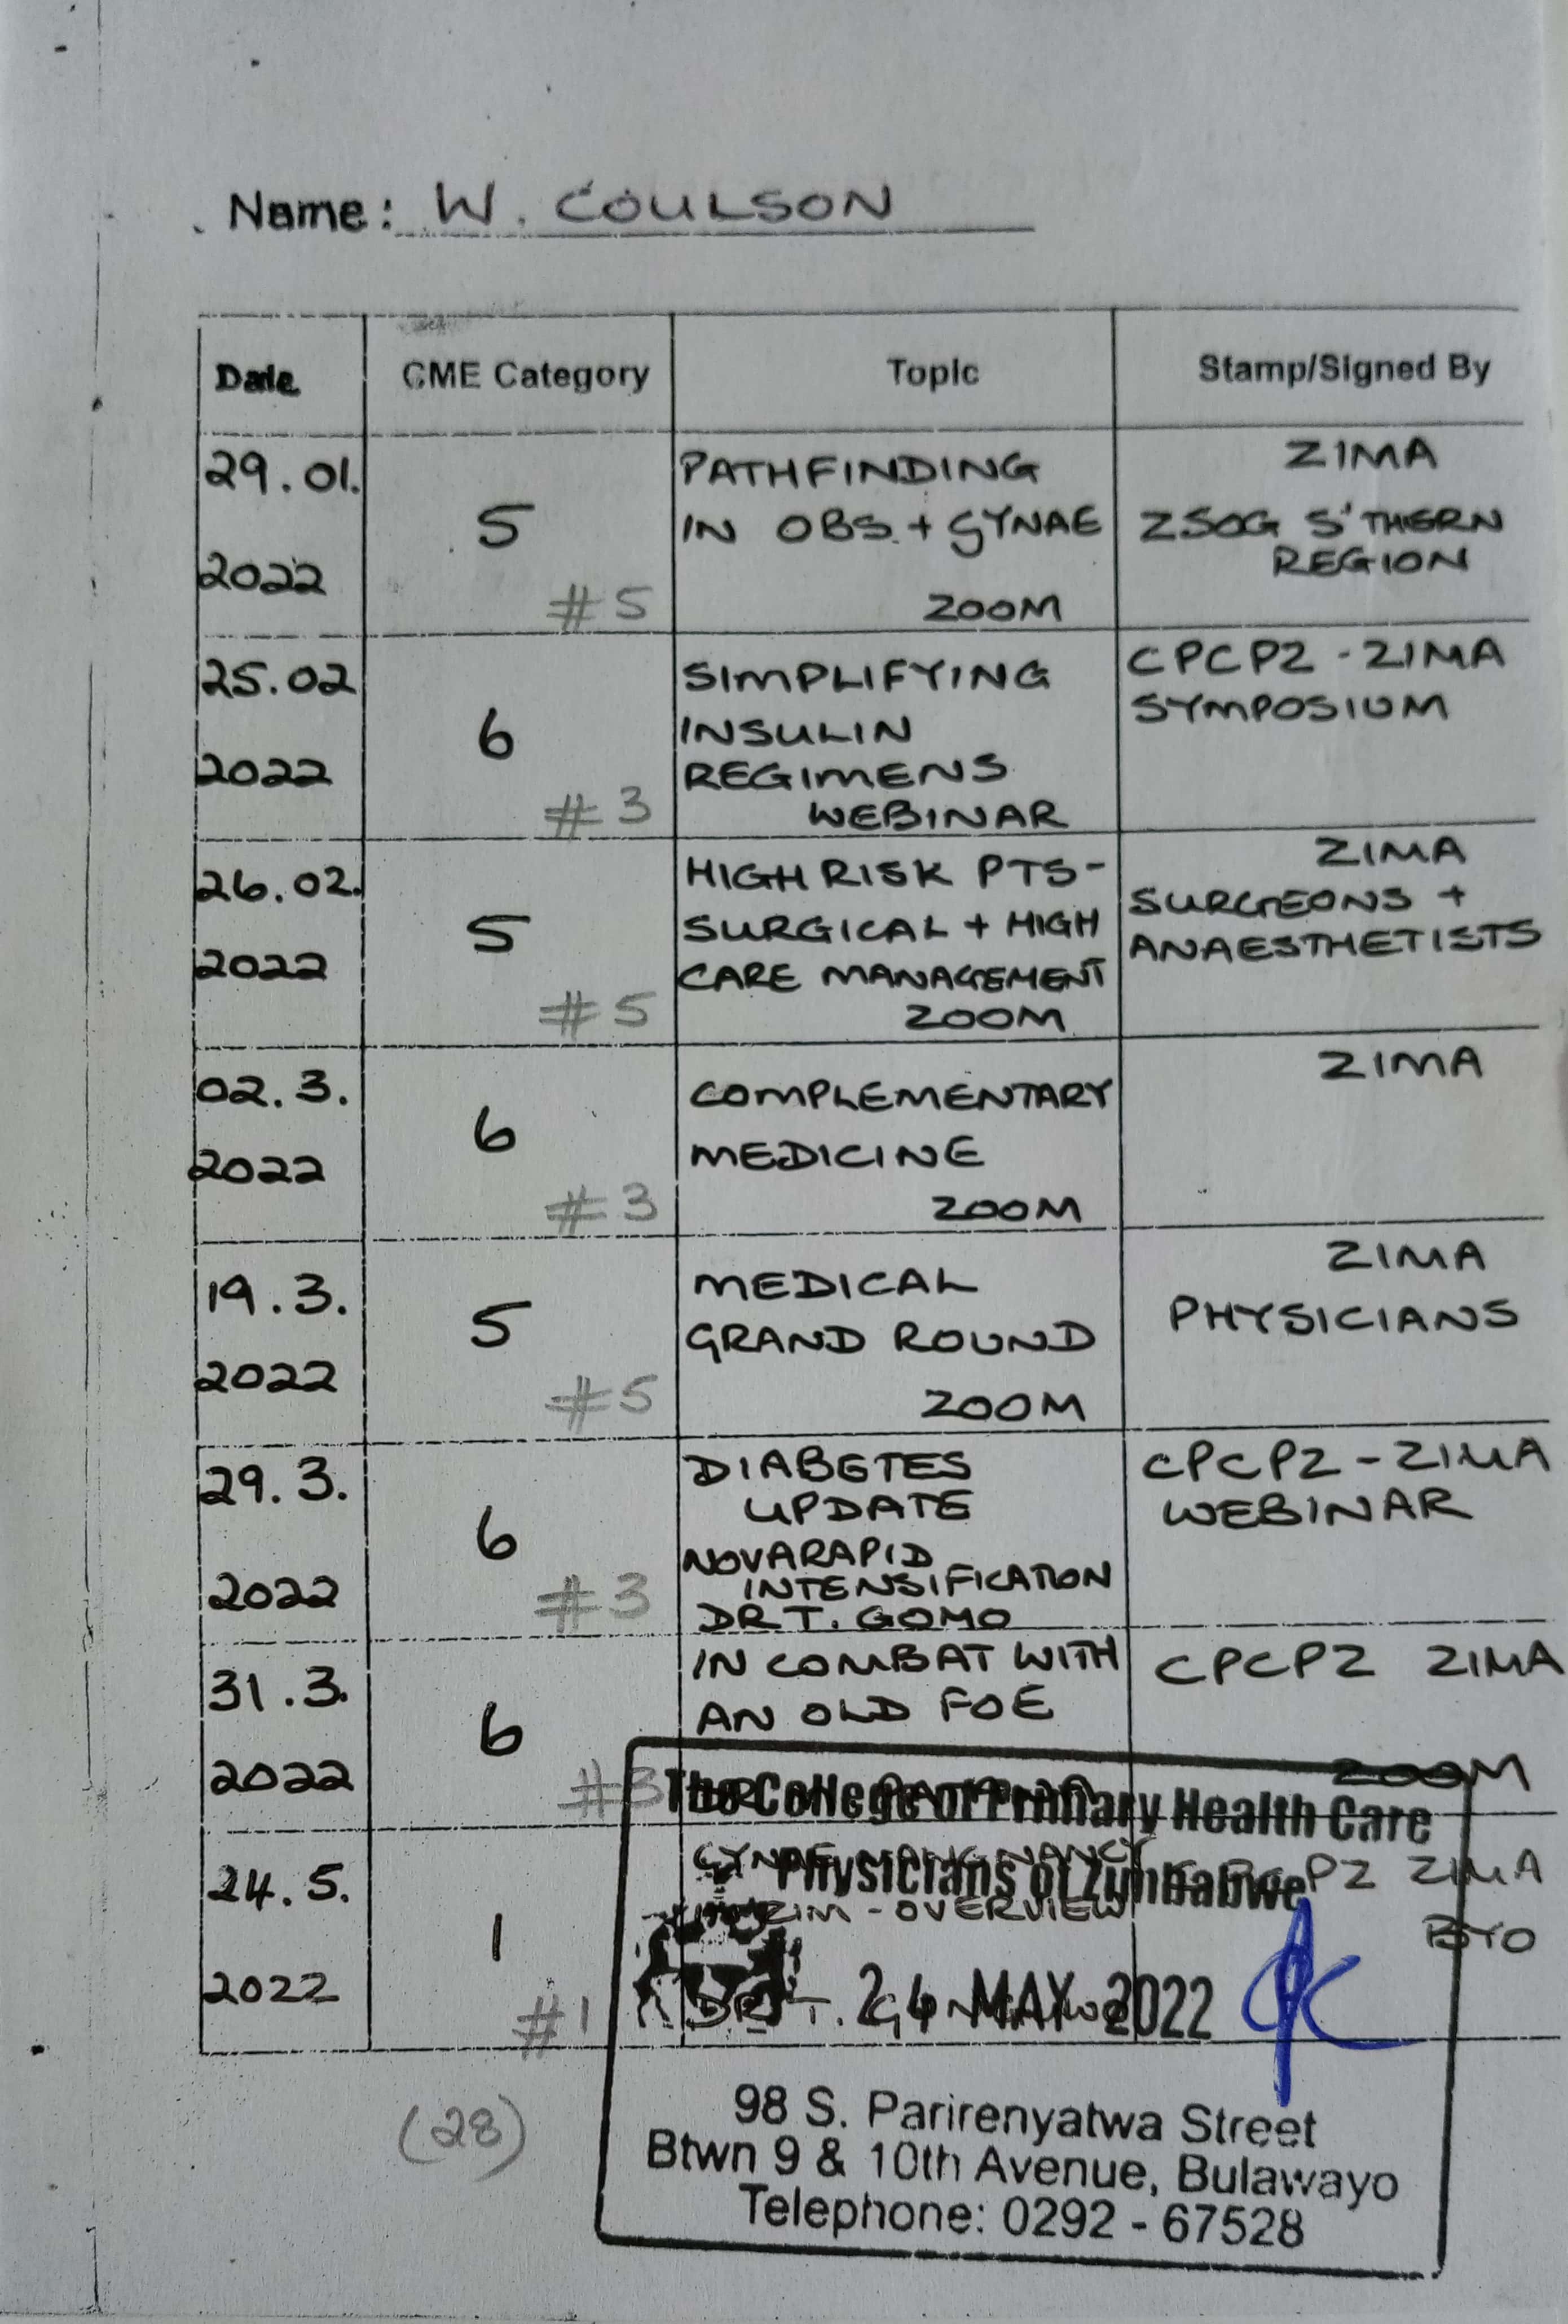 Name: W. COULSON
Date CME Category Topic Stamp/Signed By
29.01. 2022
5
#5
PATHFINDING
IN OBS. + GYNAE
ZOOM
ZIMA
ZSOG S'THERN
REGION
25.02 2022
6
#3
SIMPLIFYING
INSULIN
REGIMENS
WEBINAR
CPCPZ - ZIMA
SYMPOSIUM
26.02. 2022
5
#5
HIGH RISK PTS-
SURGICAL + HIGH
CARE MANAGEMENT
ZOOM
ZIMA
SURGEONS +
ANAESTHETISTS
02.3. 2022
6
#3
COMPLEMENTARY
MEDICINE
ZOOM
ZIMA
19.3. 2022
5
#5
MEDICAL
GRAND ROUND
ZOOM
ZIMA
PHYSICIANS
29.3. 2022
6
#3
DIABETES
UPDATE
NOVARAPID
INTENSIFICATION
DR T. GOMO
CPCPZ - ZIMA
WEBINAR
31.3. 2022
6
#3
IN COMBAT WITH
AN OLD FOE
CPCPZ ZIMA
ZOOM
24.5. 2022
1
#1
GYNAE MALIGNANCY
ZIM - OVERVIEW
DR T.
PZ ZIMA
BYO
(28)
The College of Primary Health Care
Physicians of Zimbabwe
24 MAY 2022
98 S. Parirenyatwa Street
Btwn 9 & 10th Avenue, Bulawayo
Telephone: 0292 - 67528